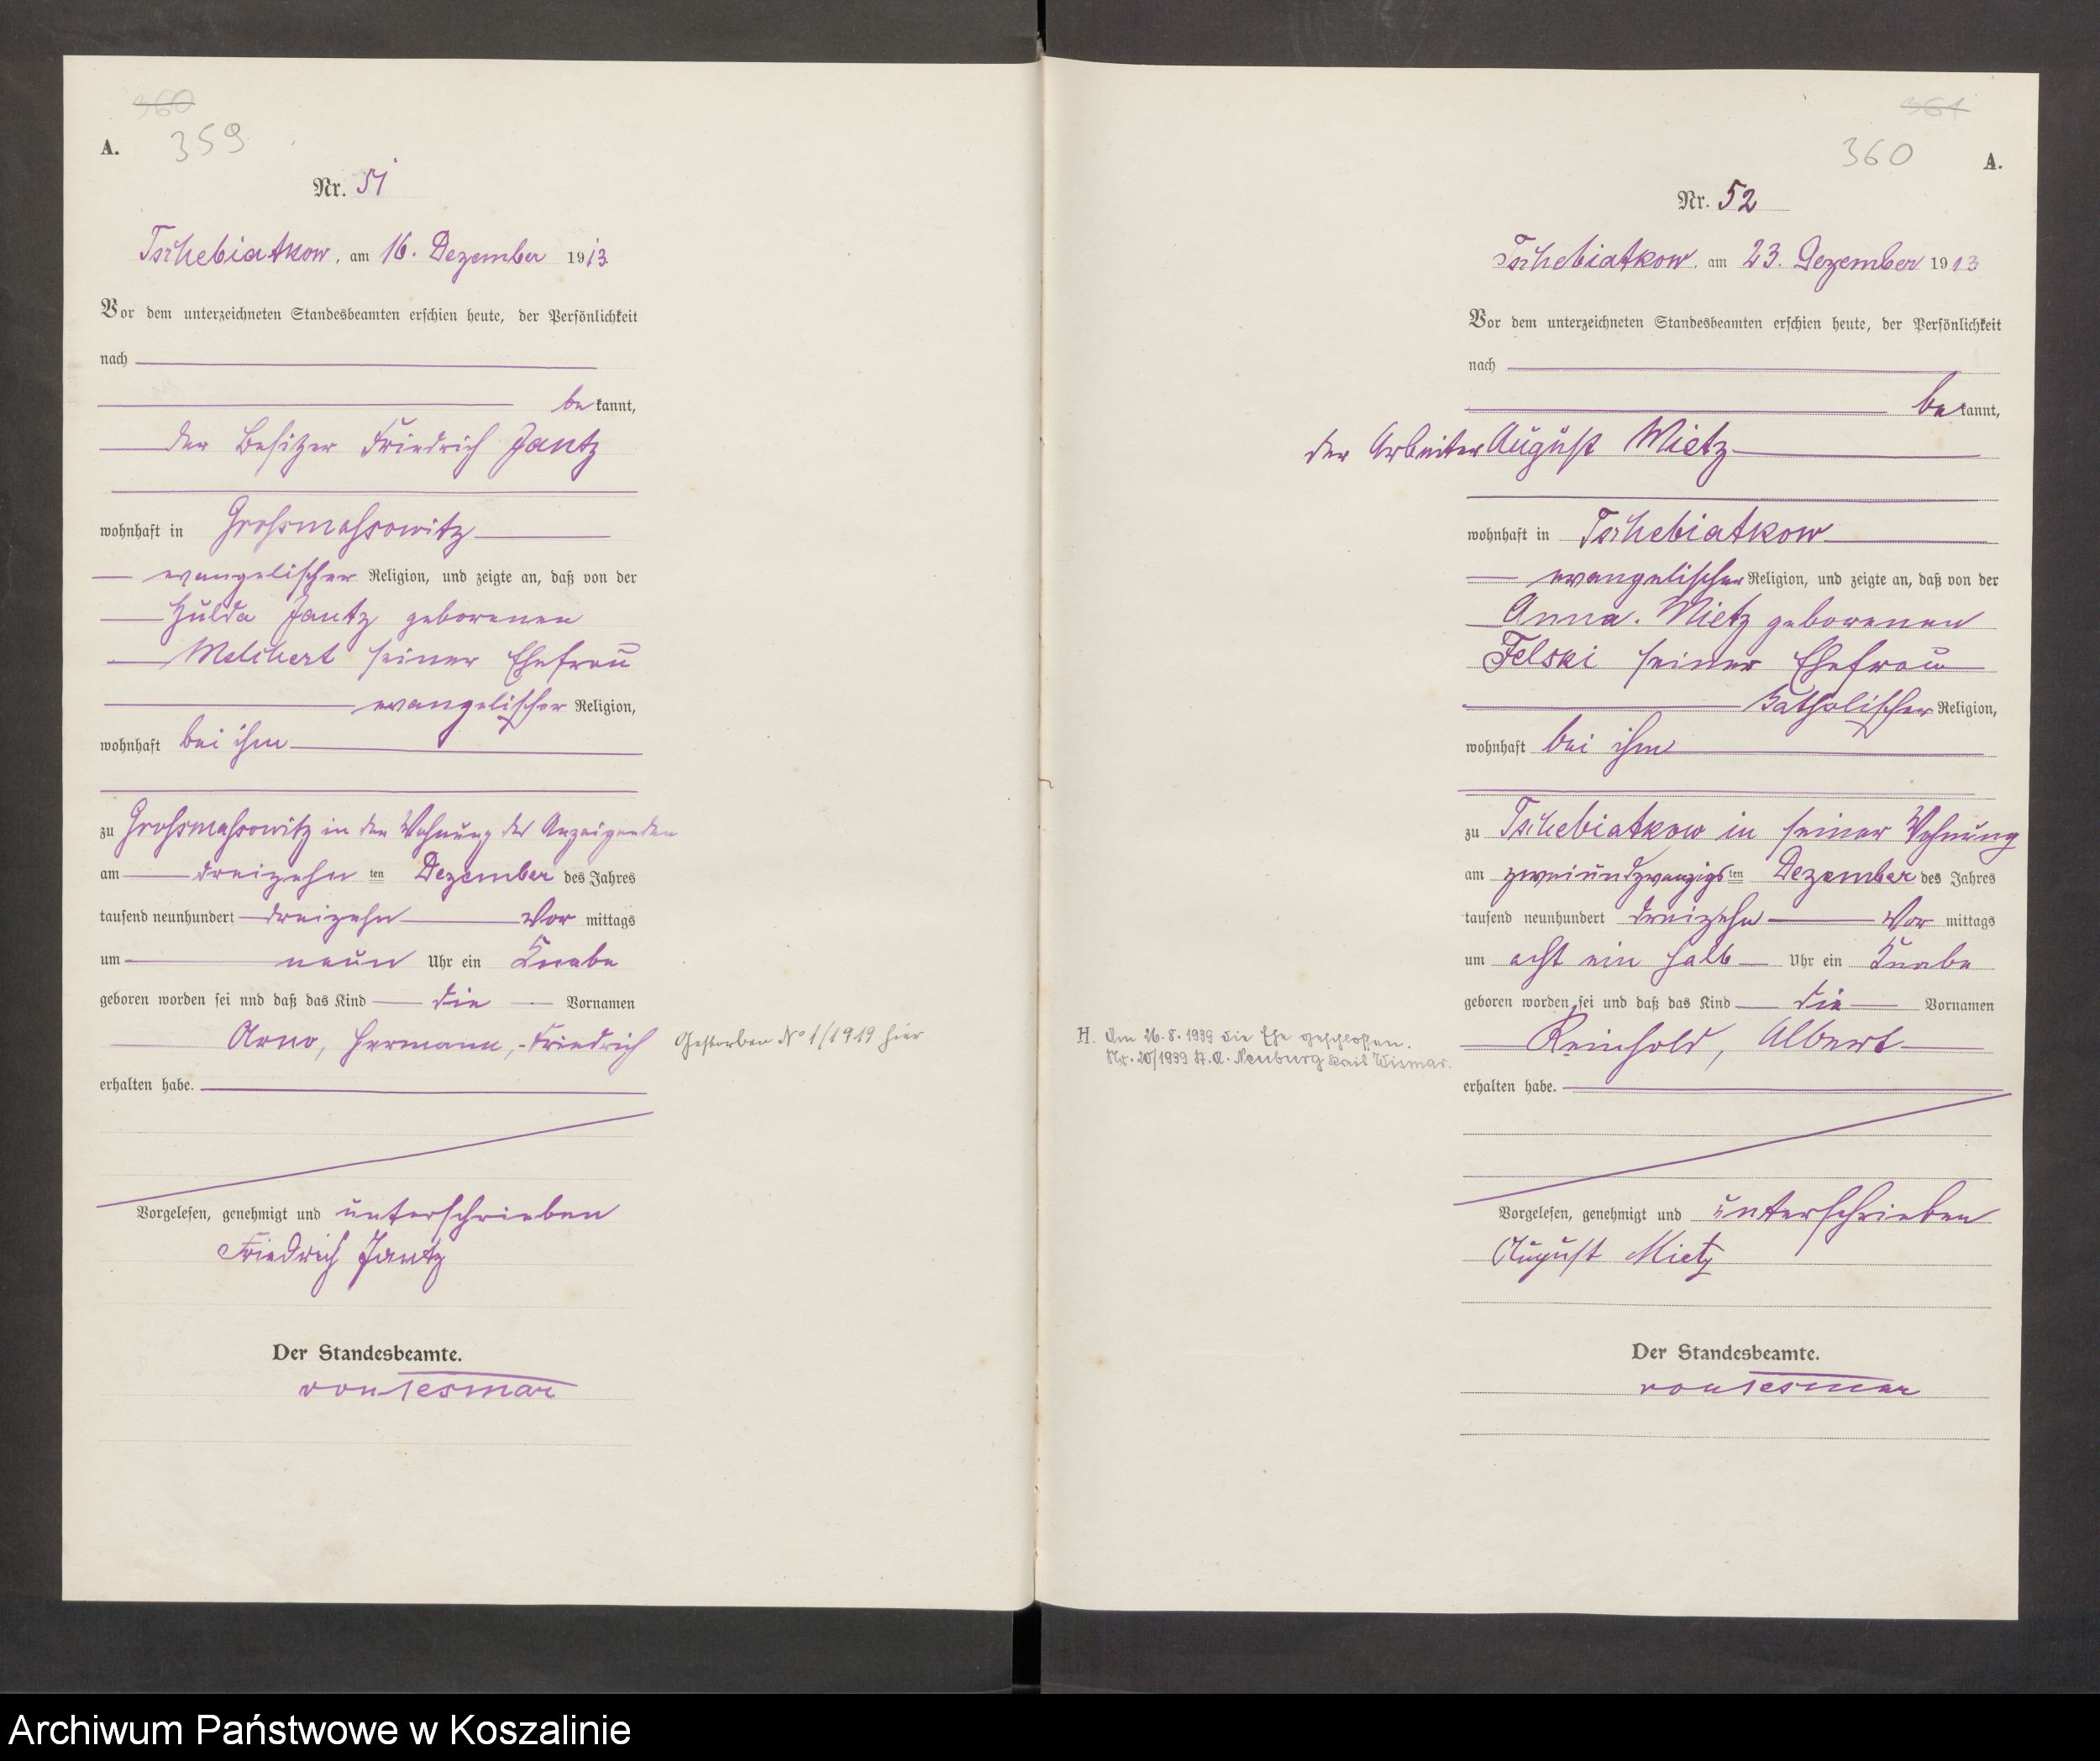 360
A. 359
Nr. 51
Tschebiatkow, am 16. Dezember 1913
Vor dem unterzeichneten Standesbeamten erschien heute, der Persönlichkeit
nach
bekannt,
der Besitzer Friedrich Jantz
wohnhaft in Grossmassowitz
evangelischer Religion, und zeigte an, daß von der
Hulda Jantz geborenen
Melchert seiner Ehefrau
evangelischer Religion,
wohnhaft bei ihm
zu Grossmassowitz in der Wohnung des Anzeigenden
am dreizehnten Dezember des Jahres
tausend neunhundert dreizehn Vormittags
um neun Uhr ein Knabe
geboren worden sei nnd daß das Kind die Vornamen
Arno, Hermann, Friedrich
Gestorben No 1/1919 hier
erhalten habe.
Vorgelesen, genehmigt und unterschrieben
Friedrich Jantz
Der Standesbeamte.
von Tesmar
361
360 A.
Nr. 52
Tschebiatkow, am 23. Dezember 1913
Vor dem unterzeichneten Standesbeamten erschien heute, der Persönlichkeit
nach
bekannt,
der Arbeiter August Mietz
wohnhaft in Tschebiatkow
evangelischer Religion, und zeigte an, daß von der
Anna Mietz geborenen
Felski seiner Ehefrau
katholischer Religion,
wohnhaft bei ihm
zu Tschebiatkow in seiner Wohnung
am zweiundzwanzigsten Dezember des Jahres
tausend neunhundert dreizehn Vormittags
um acht ein halb Uhr ein Knabe
geboren worden sei und daß das Kind die Vornamen
Reinhold, Albert
H. Am 26.8.1939 die Ehe geschlossen.
Nr. 20/1939 St. A. Neuburg Kreis Wismar.
erhalten habe.
Vorgelesen, genehmigt und unterschrieben
August Mietz
Der Standesbeamte.
von Tesmar
Archiwum Państwowe w Koszalinie